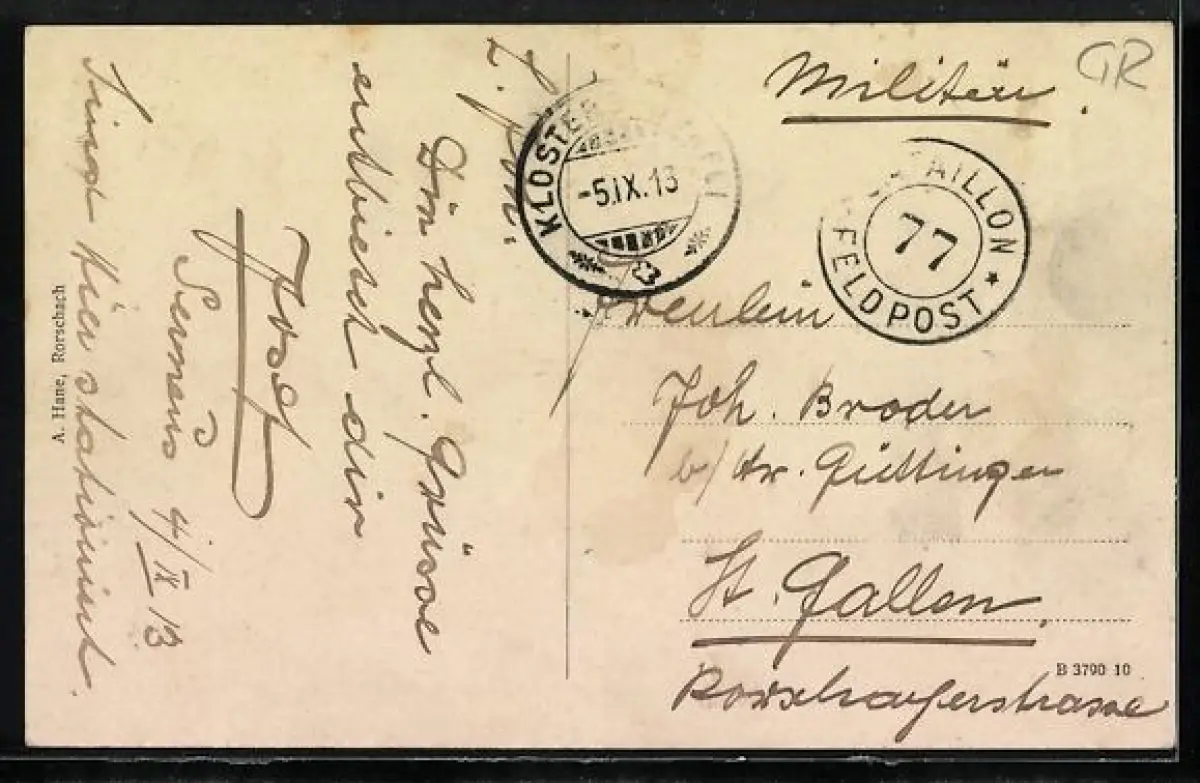 Militär.
GR
KLOSTERS
-5.IX.13
BATAILLON
77
FELDPOST
Fräulein
Joh. Broder
b/ Hr. Güttinger
St. Gallen.
Rorschacherstrasse
B 3790 10
Die herzl. Grüsse
entbietet dir
Josef
Serneus 4/IX 13
Sind hier stationiert.
A. Hane, Rorschach